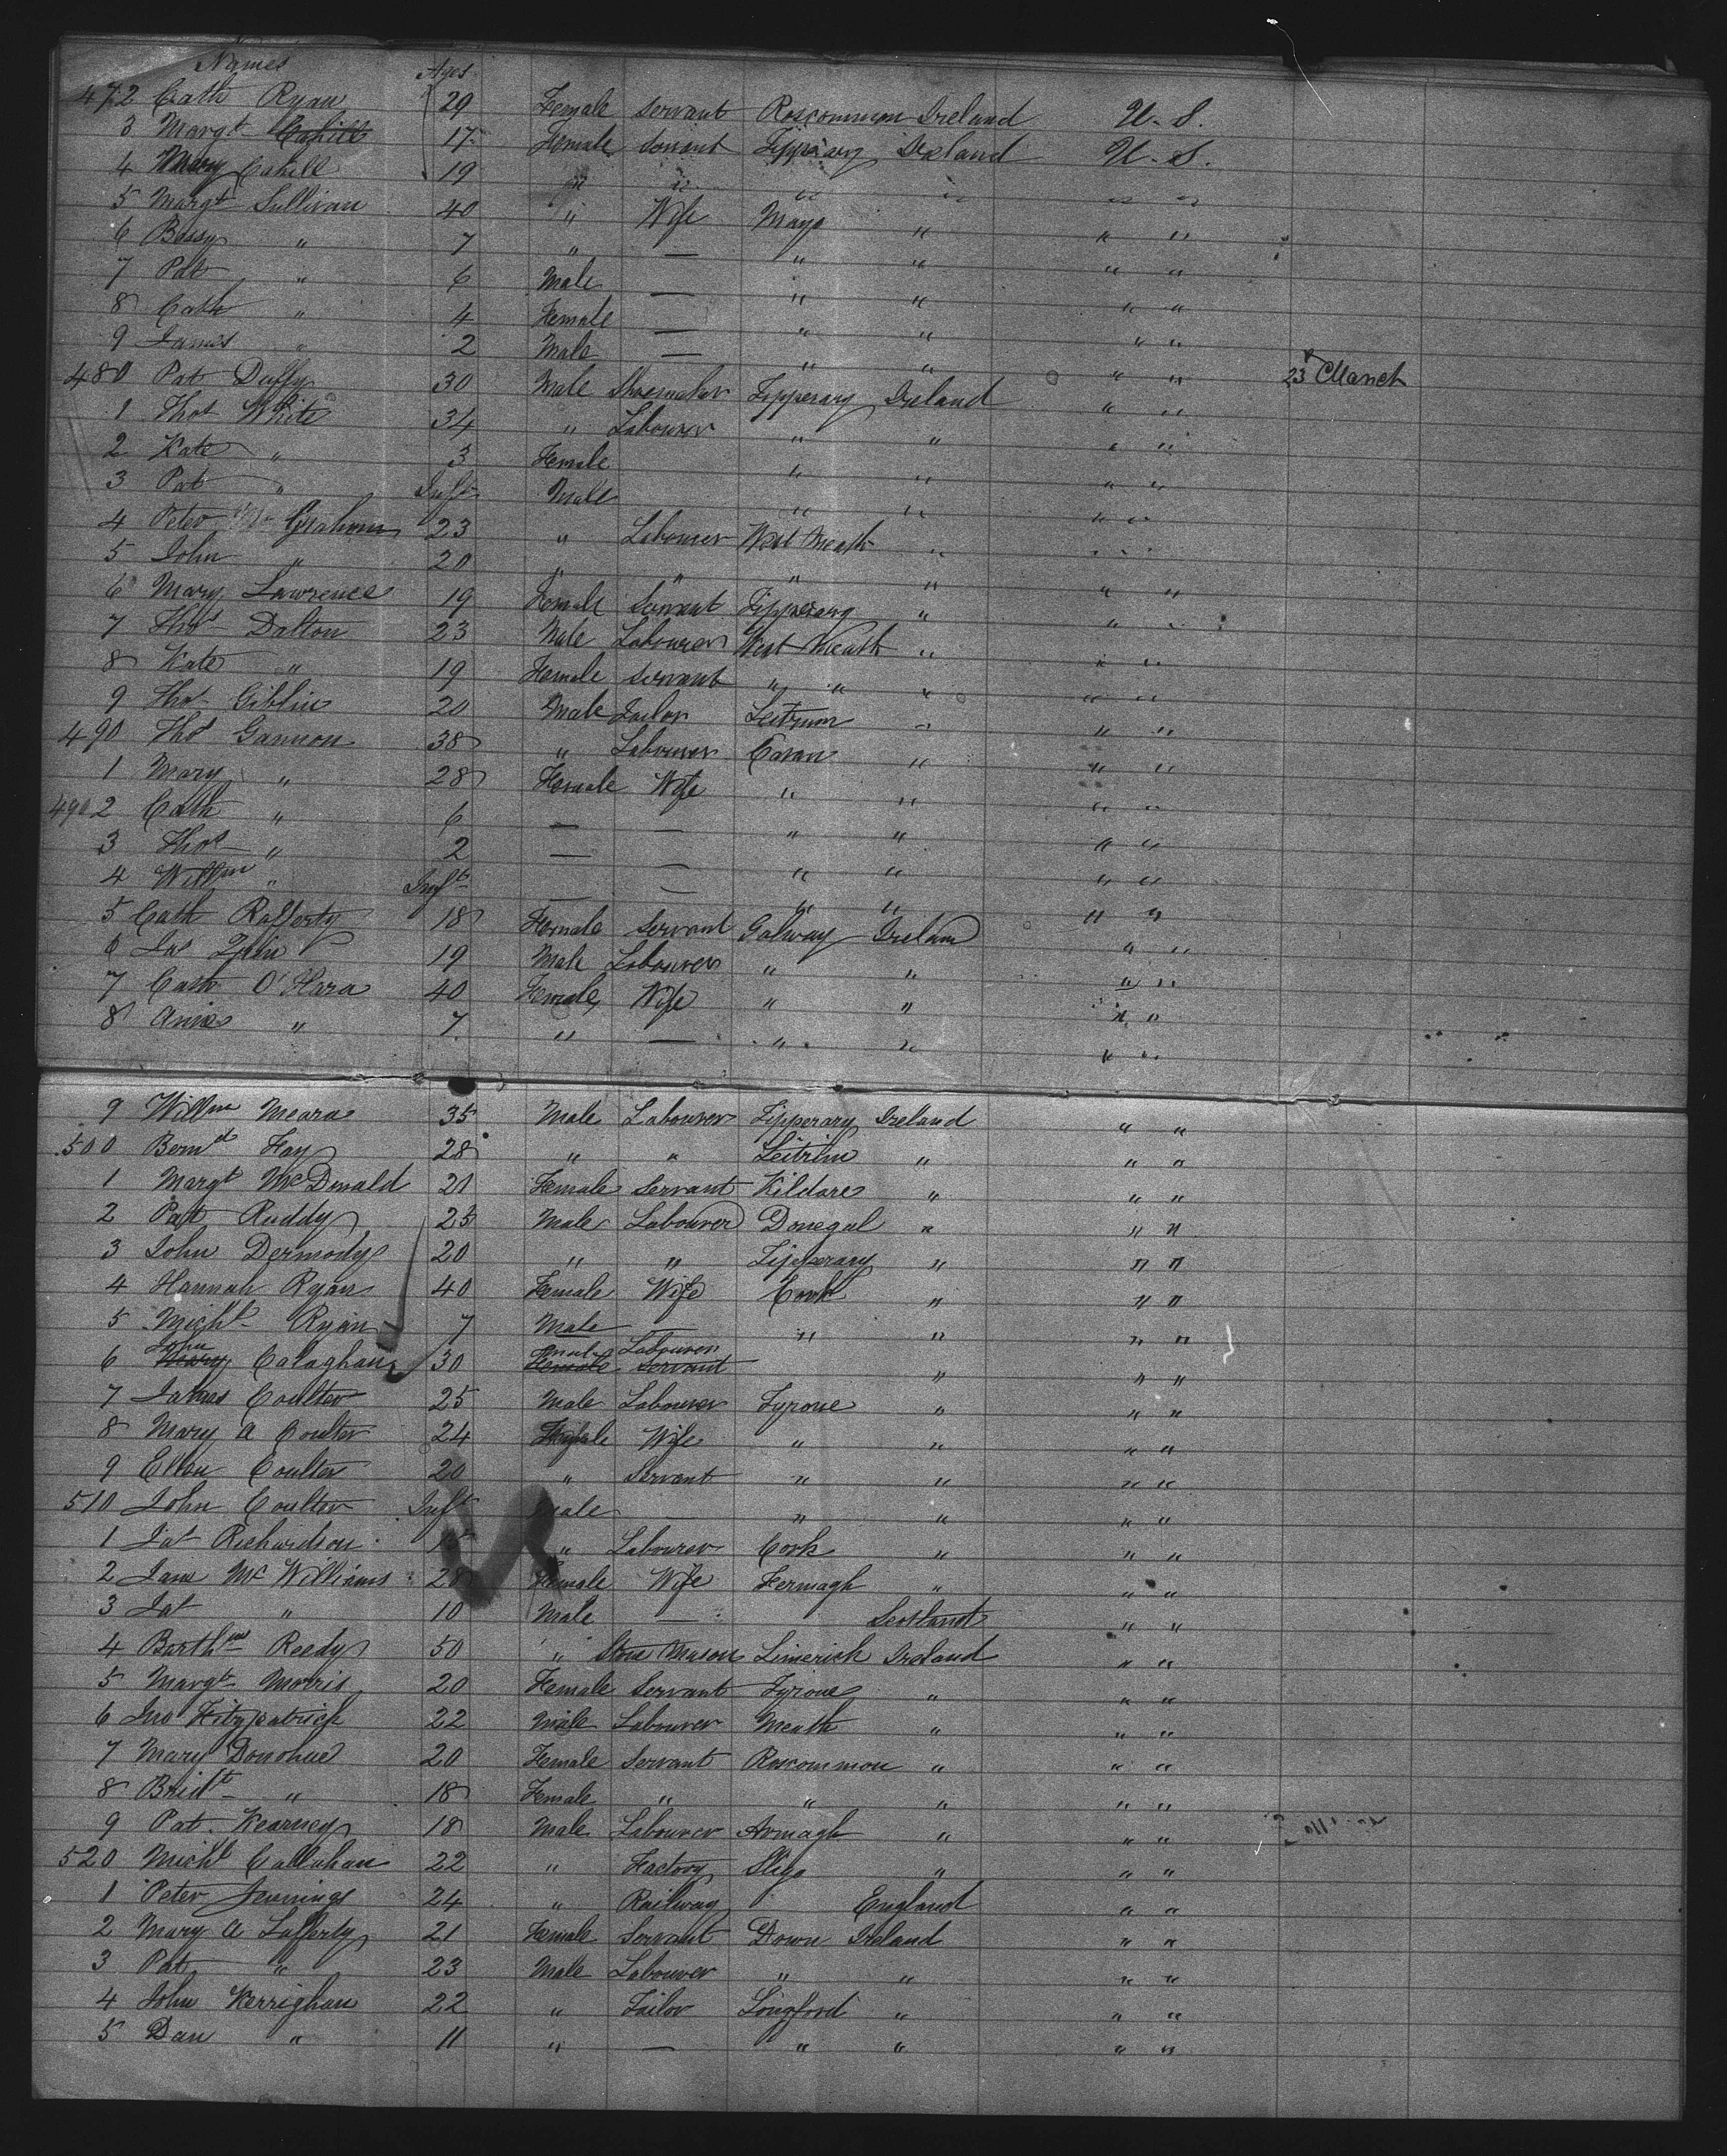 Names Ages
472 Cath Ryan 29 Female Servant Roscommon Ireland U. S.
3 Margt Cahill 17 Female Servant Tipperary Ireland U. S.
4 Mary Cahill 19 " " " " " "
5 Margt Sullivan 40 " Wife Mayo " " "
6 Bessy " 7 " — " " " "
7 Pat " 6 Male — " " " "
8 Cath " 4 Female — " " " "
9 James " 2 Male — " " " "
480 Pat Duffy 30 Male Shoemaker Tipperary Ireland " " 23 March
1 Thos White 34 " Labourer " " " "
2 Kate " 3 Female " " " "
3 Pat " Inft Male " " " "
4 Peter Graham 23 " Labourer West Meath " " "
5 John " 20 " " " " " "
6 Mary Lawrence 19 Female Servant Tipperary " " "
7 Thos Dalton 23 Male Labourer West Meath " " "
8 Kate " 19 Female Servant " " " " "
9 Thos Giblin 20 Male Tailor Leitrim " " "
490 Thos Gannon 38 " Labourer Cavan " " "
1 Mary " 28 Female Wife " " " "
4902 Cath " 6 — — " " " "
3 Thos " 2 — — " " " "
4 Willm " Inft — — " " " "
5 Cath Rafferty 18 Female Servant Galway Irelan " "
6 Jas 19 Male Labourer " " " "
7 Cath O'Hara 40 Female Wife " " " "
8 Anne " 7 " — " " " "
9 Willm Meara 35 Male Labourer Tipperary Ireland " "
500 Bernd Fay 28 " " Leitrim " " "
1 Margt McDonald 21 Female Servant Kildare " " "
2 Pat Ruddy 25 Male Labourer Donegal " " "
3 John Dermody 20 " " Tipperary " " "
4 Hannah Ryan 40 Female Wife Cork " " "
5 Michl Ryan 7 Male — " " " "
John Male Labourer
6 Mary Calaghan 30 Female Servant " " "
7 James Coulter 25 Male Labourer Tyrone " " "
8 Mary A Coulter 24 Female Wife " " " "
9 Ellen Coulter 20 " Servant " " " "
510 John Coulter Inft Male — " " " "
1 Jas Richardson 15 " Labourer Cork " " "
2 Jane McWilliams 28 Female Wife Fermagh " " "
3 Jas " 10 Male — Scotland " "
4 Barthw Reedy 50 " Stone Mason Limerick Ireland " "
5 Margt Morris 20 Female Servant Tyrone " " "
6 Jno Fitzpatrick 22 Male Labourer Meath " " "
7 Mary Donohue 20 Female Servant Roscommon " " "
8 Bridt " 18 Female " " " " "
9 Pat. Kearney 18 Male Labourer Armagh " " "
520 Michl Callahan 22 " Factory Sligo " " "
1 Peter Jennings 24 " Railway England " "
2 Mary A Lafferty 21 Female Servant Down Ireland " "
3 Pat " 23 Male Labourer " " " "
4 John Kerrighan 22 " Tailor Longford " " "
5 Dan " 11 " — " " " "